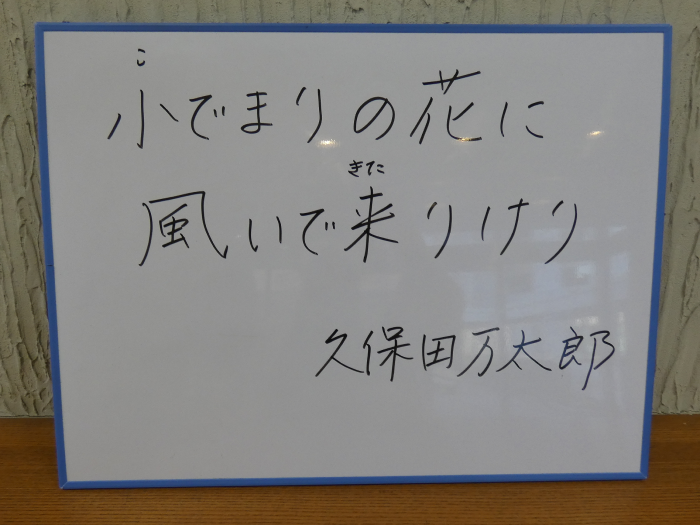 こ
小でまりの花に
きた
風いで来りけり
久保田万太郎